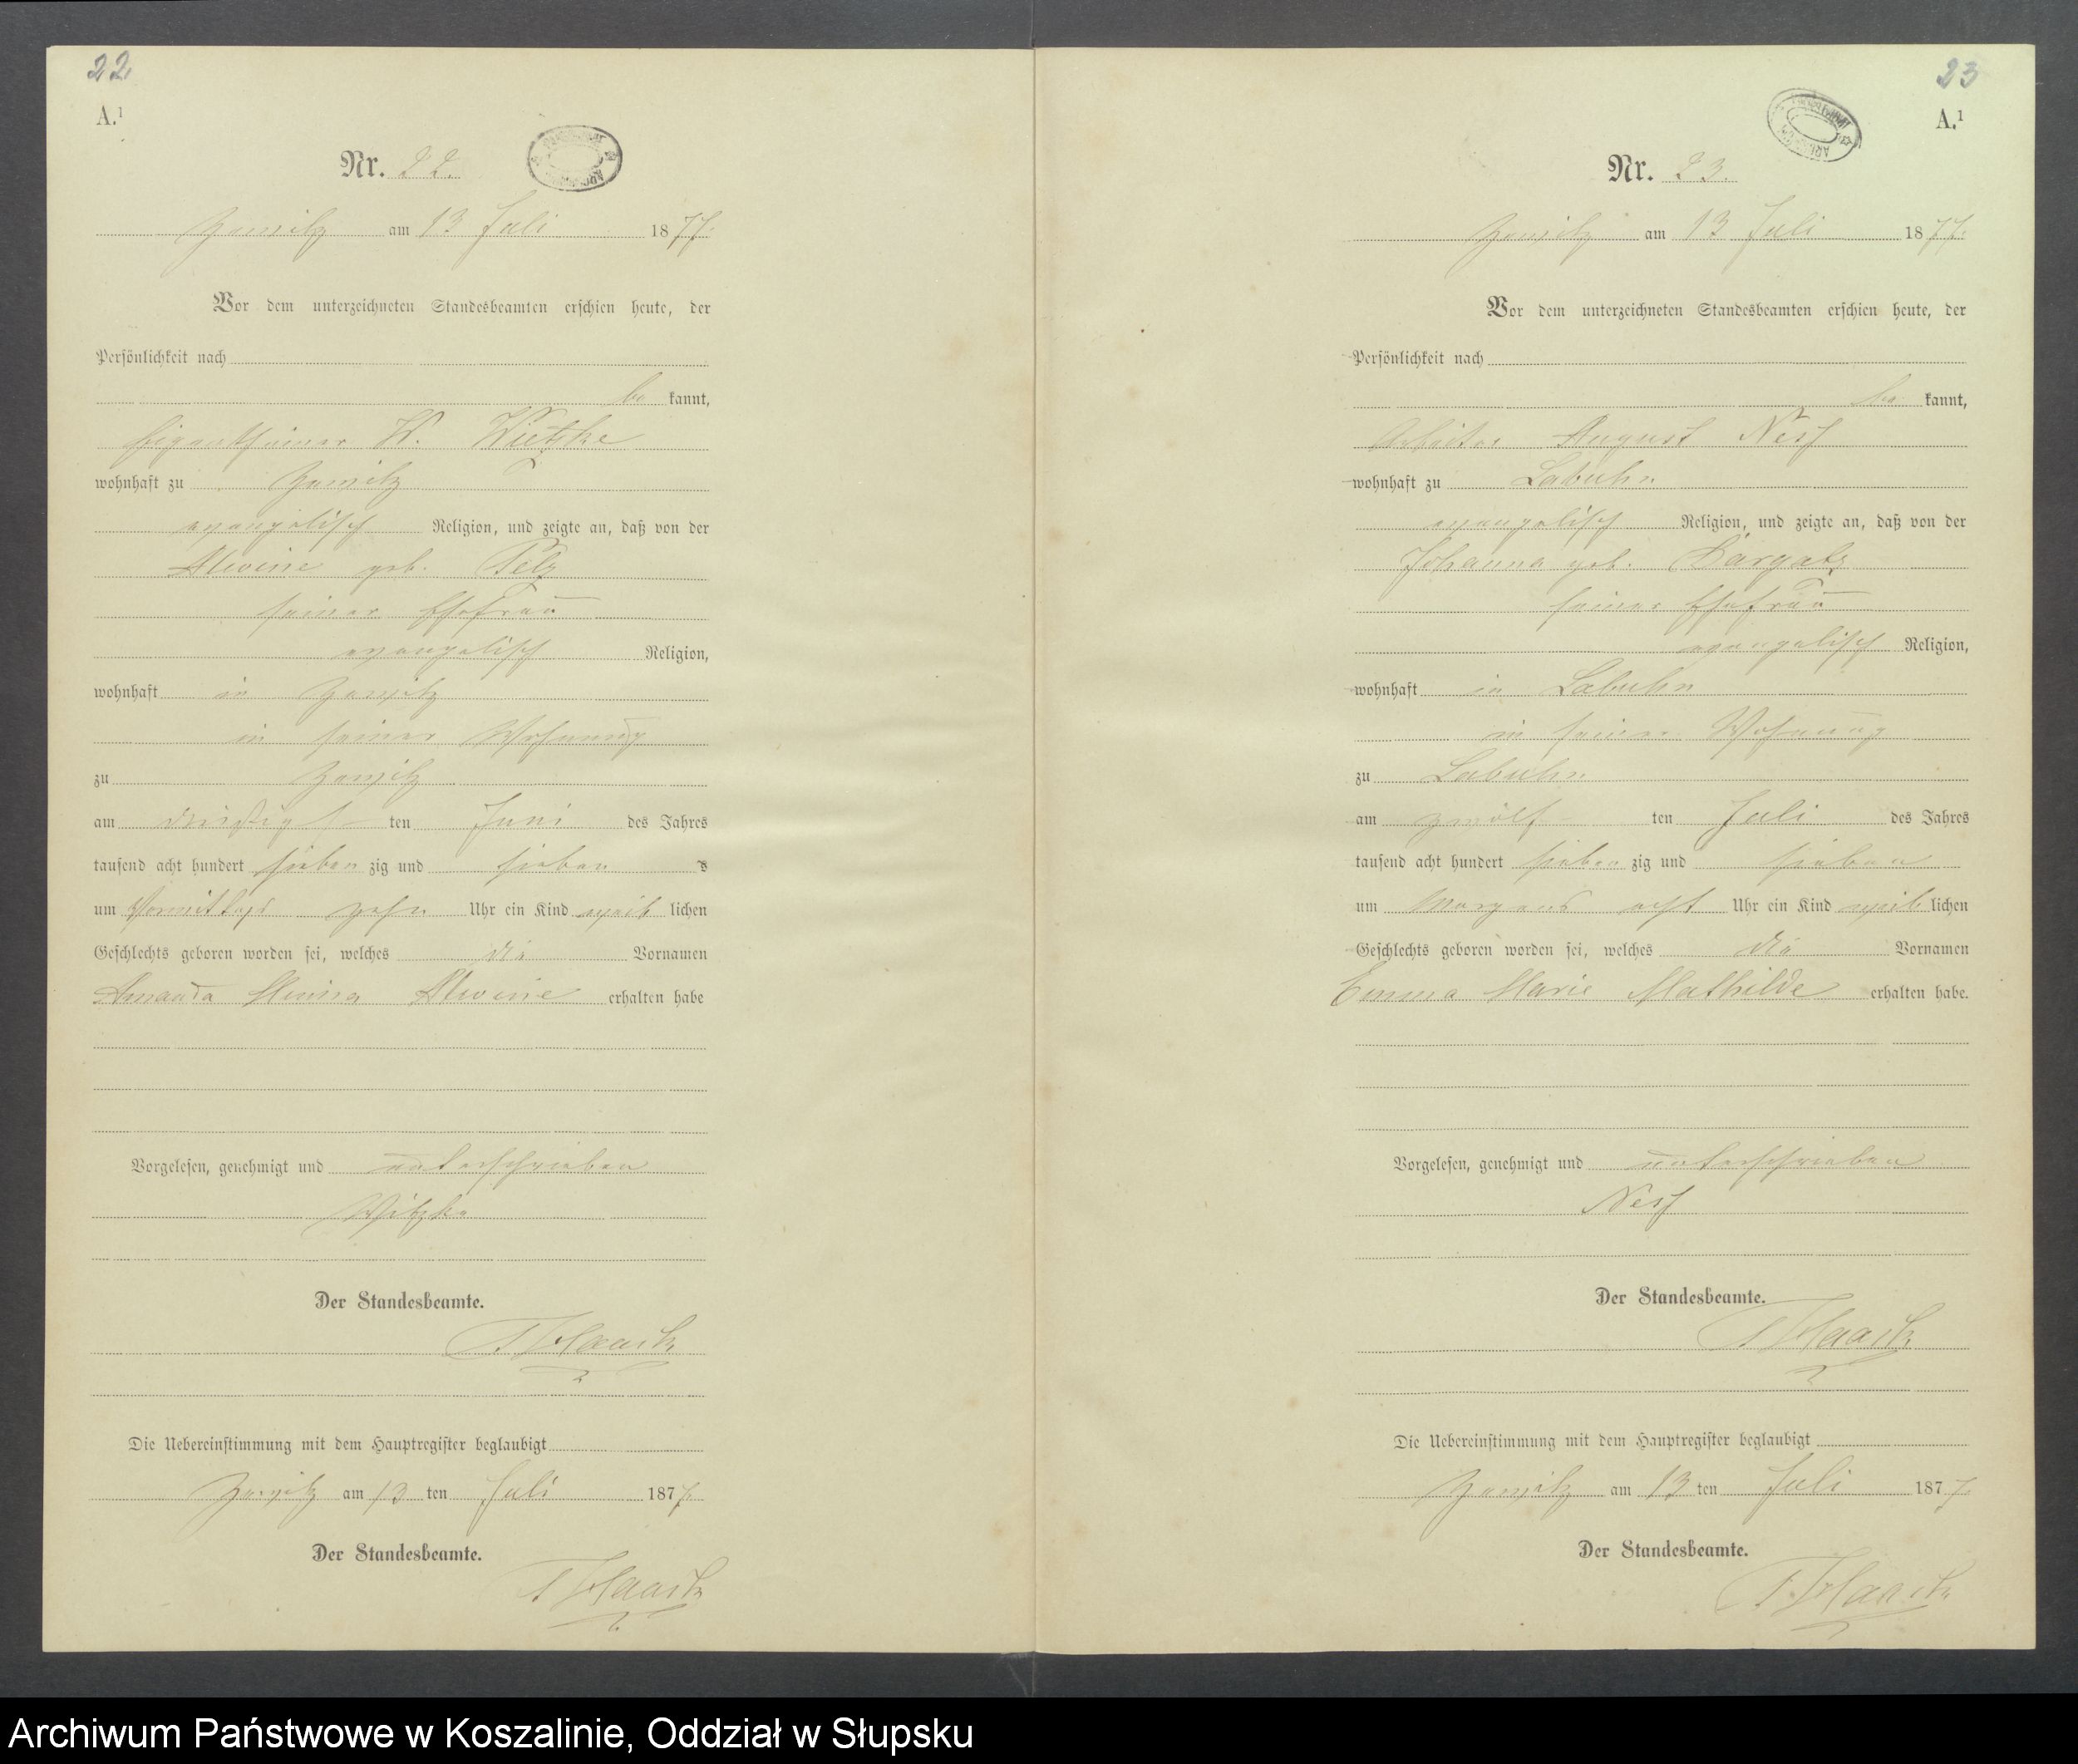 22
A.¹
Nr. 22.
Zewitz am 13 Juli 1877.
Vor dem unterzeichneten Standesbeamten erschien heute, der
Persönlichkeit nach
be kannt,
Eigenthümer W. Wietzke
wohnhaft zu Zewitz
evangelisch Religion, und zeigte an, daß von der
Alwine geb. Pelz
seiner Ehefrau
evangelisch Religion,
wohnhaft in Zewitz
in seiner Wohnung
zu Zewitz
am dreißigst ten Juni des Jahres
tausend acht hundert sieben zig und sieben
um Vormittags zehn Uhr ein Kind weib lichen
Geschlechts geboren worden sei, welches die Vornamen
Amanda Alwine erhalten habe
Vorgelesen, genehmigt und unterschrieben
Witzke
Der Standesbeamte.
Haack
Die Uebereinstimmung mit dem Hauptregister beglaubigt
Zewitz am 13 ten Juli 1877.
Der Standesbeamte.
Haack
23
A.¹
Nr. 23.
Zewitz am 13 Juli 1877.
Vor dem unterzeichneten Standesbeamten erschien heute, der
Persönlichkeit nach
be kannt,
Arbeiter August
wohnhaft zu Labuhn
evangelisch Religion, und zeigte an, daß von der
Johanna geb. Dargatz
seiner Ehefrau
evangelisch Religion,
wohnhaft in Labuhn
in seiner Wohnung
zu Labuhn
am zwölf ten Juli des Jahres
tausend acht hundert sieben zig und sieben
um Morgens acht Uhr ein Kind weib lichen
Geschlechts geboren worden sei, welches die Vornamen
Emma Marie Mathilde erhalten habe.
Vorgelesen, genehmigt und unterschrieben
Der Standesbeamte.
Haack
Die Uebereinstimmung mit dem Hauptregister beglaubigt
Zewitz am 13 ten Juli 1877
Der Standesbeamte.
Haack
Archiwum Państwowe w Koszalinie, Oddział w Słupsku